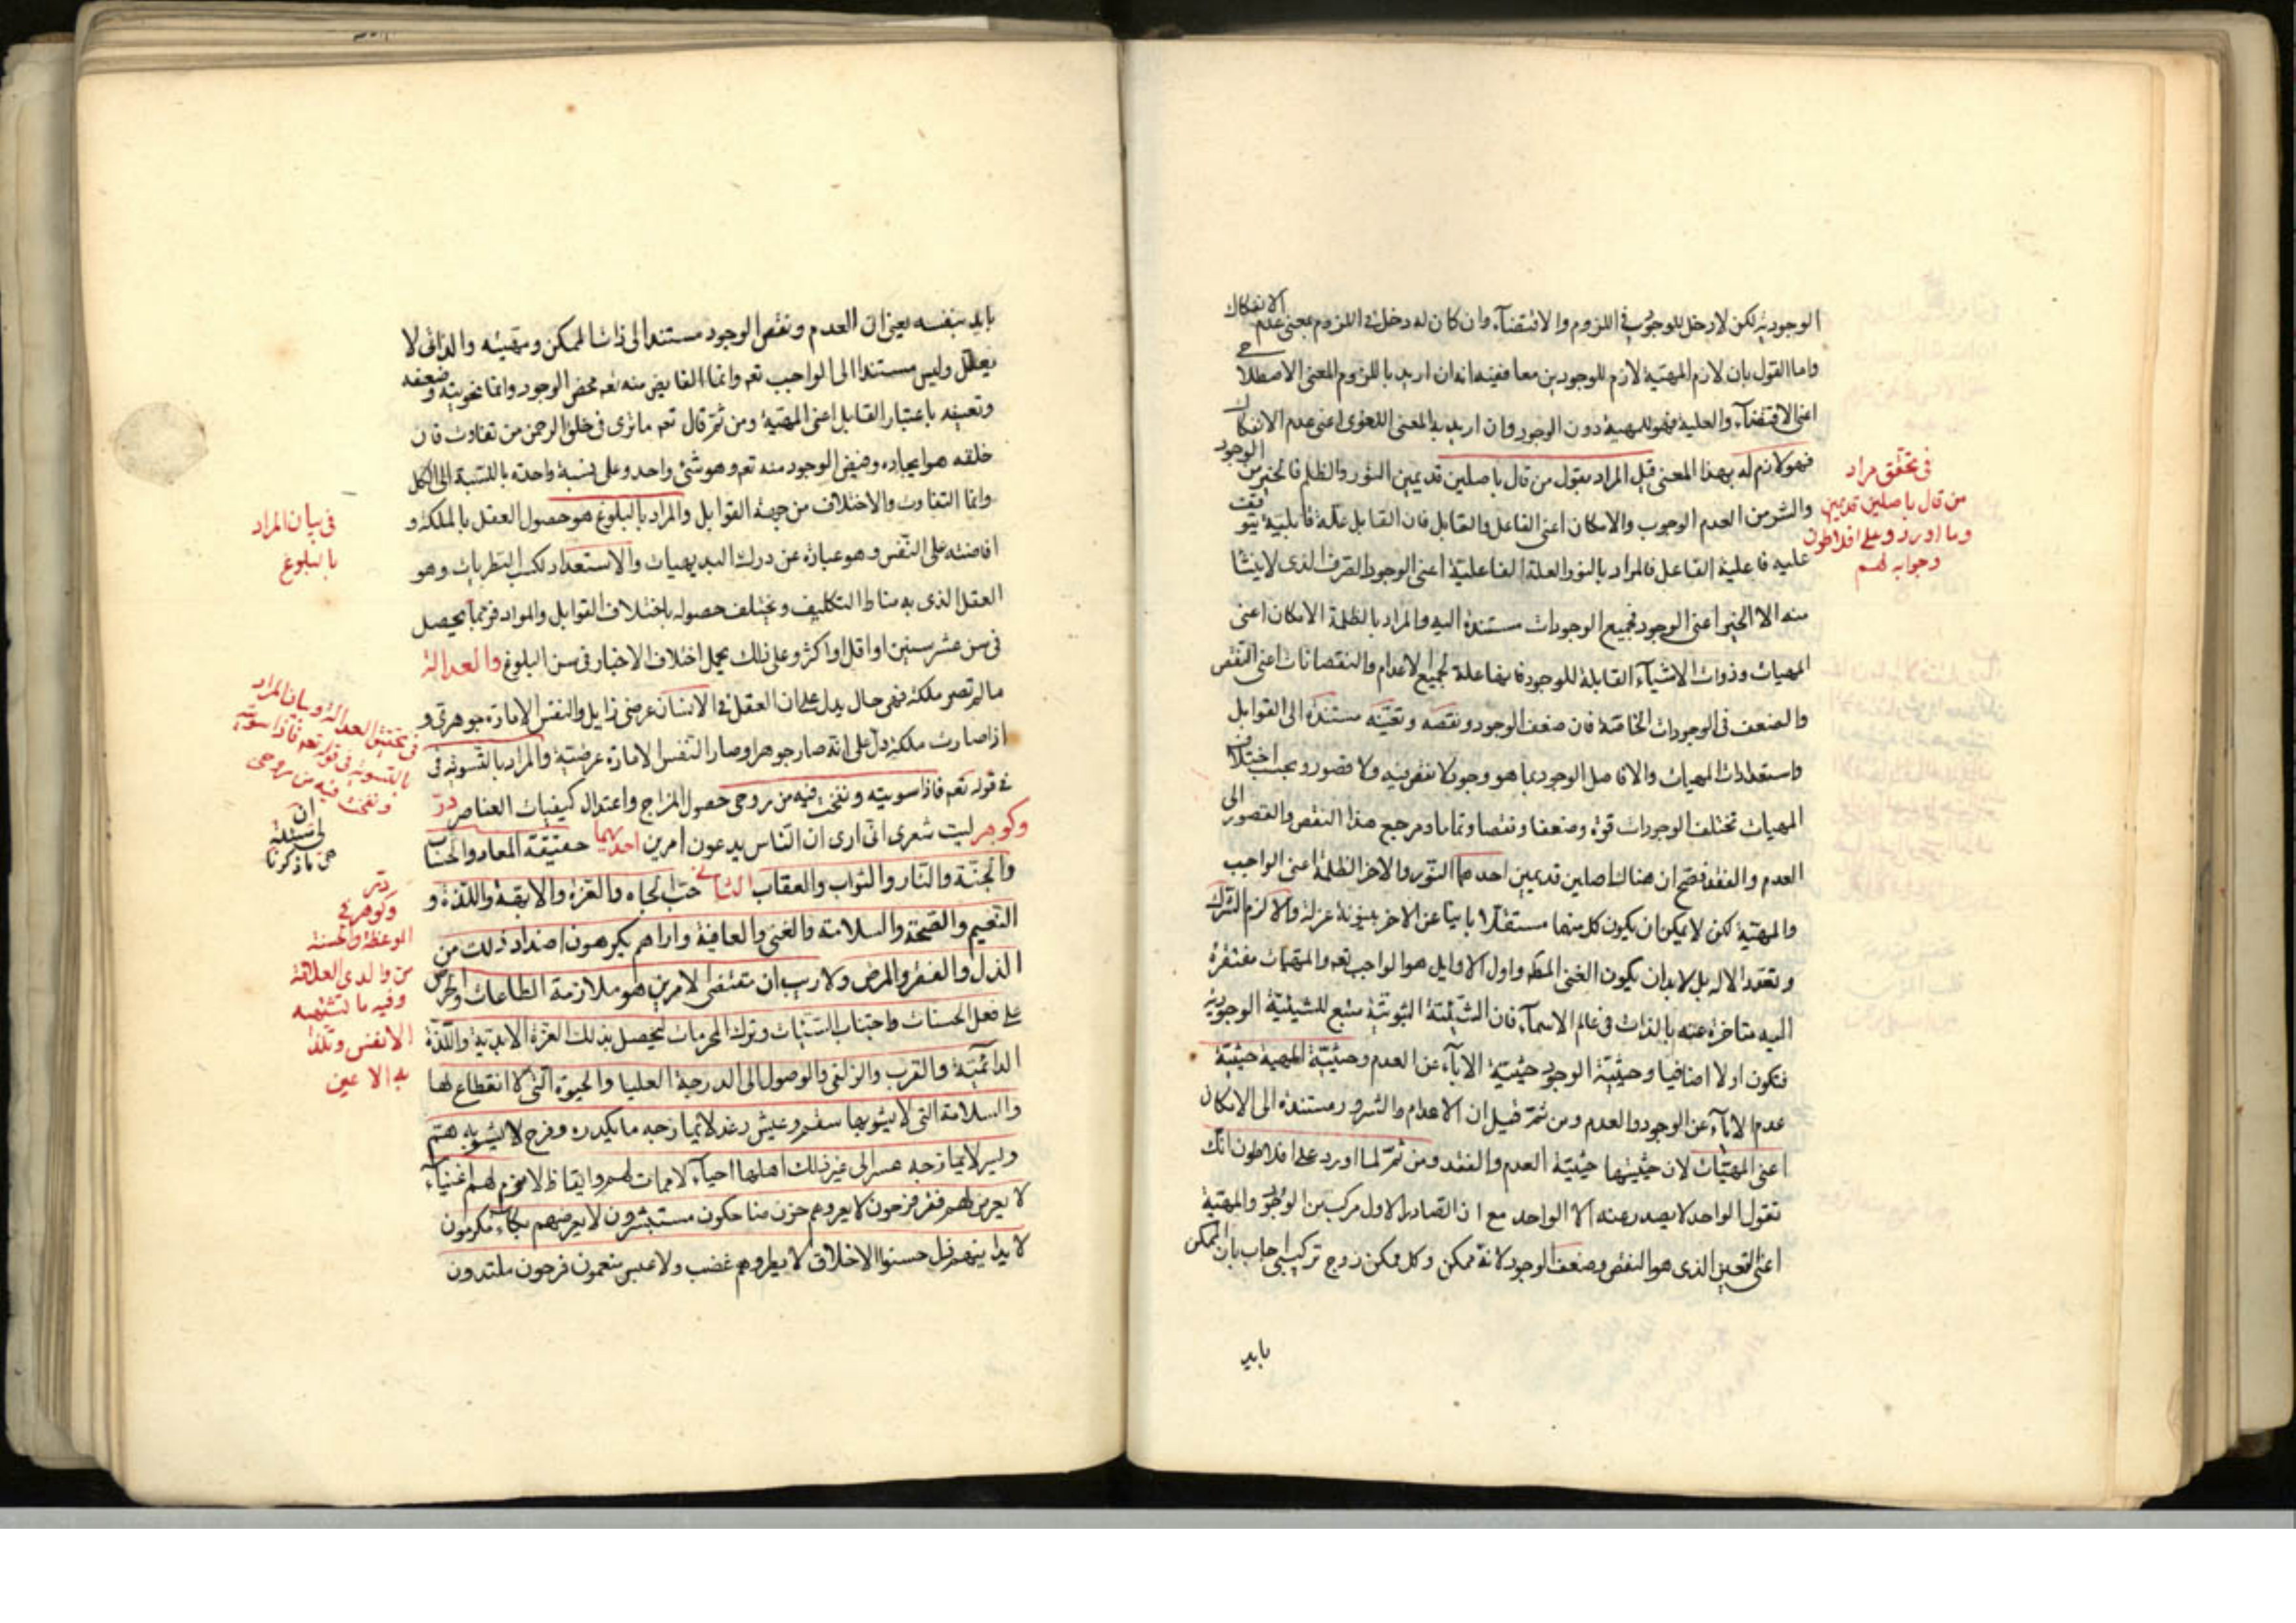 الوجودية لكن لا دخل للوجود في اللزوم والاقتضآء وان كان له دخل في اللزوم بمعنى عدم الانفكاك
واما القول بان لازم المهية لازم للوجودين معا ففيه انه ان اريد باللزوم المعنى الاصطلاحي
اعنى الاقتضآء والعلية فهو للمهية دون الوجود وان اريد به المعنى اللغوى اعنى عدم الانفكاك
فهو لازم له بهذا المعنى قيل المراد بقول من قال باصلين قديمين النور والظلمة فالخير من الوجود
والشر من العدم الوجوب والامكان اعنى الفاعل والقابل فان القابل علة قابلية يتوقف
عليه فاعلية الفاعل فالمراد بالنور العلة الفاعلية اعنى الوجود الصرف الذى لا ينشا
منه الا الخير اعنى الوجود فجميع الوجودات مستندة اليه والمراد بالظلمة الامكان اعنى
المهيات وذوات الاشيآء القابلة للوجود فانها علة لجميع الاعدام والنقصانات اعنى النقص
والضعف فى الوجودات الخاصة فان ضعف الوجود ونقصه وتعينه مستندة الى القوابل
واستعدادات المهيات والا فاصل الوجود بما هو وجود لا نقص فيه ولا قصور وبحسب اختلاف
المهيات تختلف الوجودات قوة وضعفا ونقصا وتماما ومرجع هذا النقص والقصور الى
العدم والفقد فصح ان هناك اصلين قديمين احدهما النور والاخر الظلمة اعنى الواجب
والمهية لكن لا يمكن ان يكون كل منهما مستقلا باينا عن الاخر بينونة عزلة والا لزم الشرك
وتعدد الاله بل لا بد ان يكون الغنى المطلق واول الاوايل هو الواجب تعه والمهيات مفتقرة
اليه متاخرة عنه بالذات فى عالم الاسمآء فان الشيئية الثبوتية تتبع للشيئية الوجودية
فتكون اولا اضافيا وحيثية الوجود حيثية الابآء عن العدم وحيثية المهية حيثية
عدم الابآء عن الوجود والعدم ومن ثمة قيل ان الاعدام والشرور مستندة الى الامكان
اعنى المهيات لان حيثيتها حيثية العدم والفقد ومن ثمة لما اورد على افلاطون انك
تقول الواحد لا يصدر عنه الا الواحد مع ان الصادر الاول مركب من الوجود والمهية
اعنى التعين الذى هو النقص وضعف الوجود لانه ممكن وكل ممكن زوج تركيبى اجاب بان الممكن
بايد
فى تحقق مراد
من قال باصلين قديمين
وما اورد وعلى افلاطون
وجوابه لهم
بايد بنفسه يعنى ان العدم ونقص الوجود مستند الى ذات الممكن ومهيته والذاتى لا
يعلل وليس مستندا الى الواجب تعه وانما الفايض منه تعه محض الوجود وانما نحويته وضعفه
وتعينه باعتبار القابل اعنى المهية ومن ثمة قال تعه ما ترى فى خلق الرحمن من تفاوت فان
خلقه هو ايجاده وفيض الوجود منه تعه وهو شئ واحد وعلى نسبة واحدة بالنسبة الى الكل
وانما التفاوت والاختلاف من جهة القوابل والمراد بالبلوغ هو حصول العقل بالملكة و
افاضته على النفس وهو عبارة عن درك البديهيات والاستعداد لكسب النظريات وهو
العقل الذى به مناط التكليف ويختلف حصوله باختلاف القوابل والمواد فربما يحصل
فى سن عشر سنين او اقل او اكثر وعلى ذلك يحمل اختلاف الاخبار فى سن البلوغ والعدالة
ما لم تصر ملكة فهى حال يدل على ان العقل فى الانسان عرضى زايل والنفس الامارة جوهرى و
اذا صارت ملكة دل على انه صار جوهرا وصار النفس الامارة عرضية والمراد بالتسوية فى
فى قوله تعه فاذا سويته ونفخت فيه من روحى حصول المزاج واعتدال كيفيات العناصر در
وكوهر ليت شعرى انى ارى ان الناس يدعون امرين احدهما حقيقة المعاد والحساب
والجنة والنار والثواب والعقاب الثانى حب الجاه والعزة والابهة واللذة و
النعيم والصحة والسلامة والغنى والعافية واراهم يكرهون اضداد ذلك من
الذل والفقر والمرض ولا ريب ان مقتضى الامرين هو ملازمة الطاعات والحرص
على فعل الحسنات واجتناب السيئات وترك المحرمات ليحصل بذلك العزة الابدية واللذة
الدائمية والقرب والزلفى والوصول الى الدرجة العليا والحيوة التى لا انقطاع لها
والسلامة التى لا يشوبها سقم وعيش رغد لا يمازجه ما يكدره وفرح لا يشوبه هم
ويسر لا يمازجه عسر الى غير ذلك اهلها احيآء لا ممات لهم وايقاظ لا نوم لهم اغنيآء
لا يعرض لهم فقر فرحون لا يعروهم حزن ضاحكون مستبشرون لا يعرضهم بكآء مكرمون
لا يدانيهم ذل حسنوا الاخلاق لا يعروهم غضب ولا عبس منعمون فرحون ملتذون
فى بيان المراد
بالبلوغ
فى تحقيق العدالة وبيان المراد
بالتسوية فى قوله تعه فاذا سويته
ونفخت فيه من روحى
در
وكوهر فى
الموعظة والحسنة
من والدى العلامة
وفيه ما تشتهيه
الانفس وتلذ
به الاعين